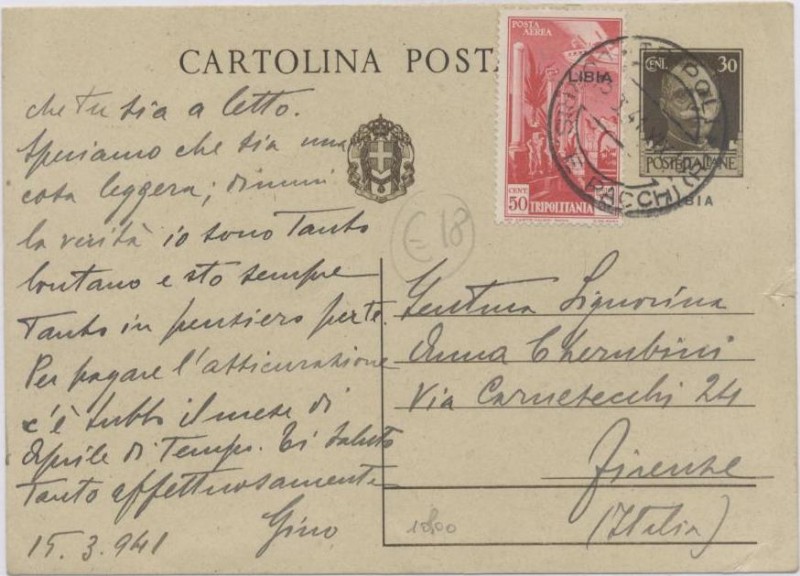 CARTOLINA POSTA
POSTA
AEREA
LIBIA
CENT.
50 TRIPOLITANIA
CENT. 30
POSTE ITALIANE
LIBIA
TRIPOLI
PACCHI
che tu sia a letto.
Speriamo che sia una
cosa leggera; dimmi
la verità io sono tanto
lontano e sto sempre
tanto in pensiero per te.
Per pagare l'assicurazione
c'è tutto il mese di
Aprile di tempo. Ti saluto
tanto affettuosamente
Gino
15.3.941
18
Gentma Signorina
Anna Cherubini
Via Carnesecchi 24
Firenze
(Italia)